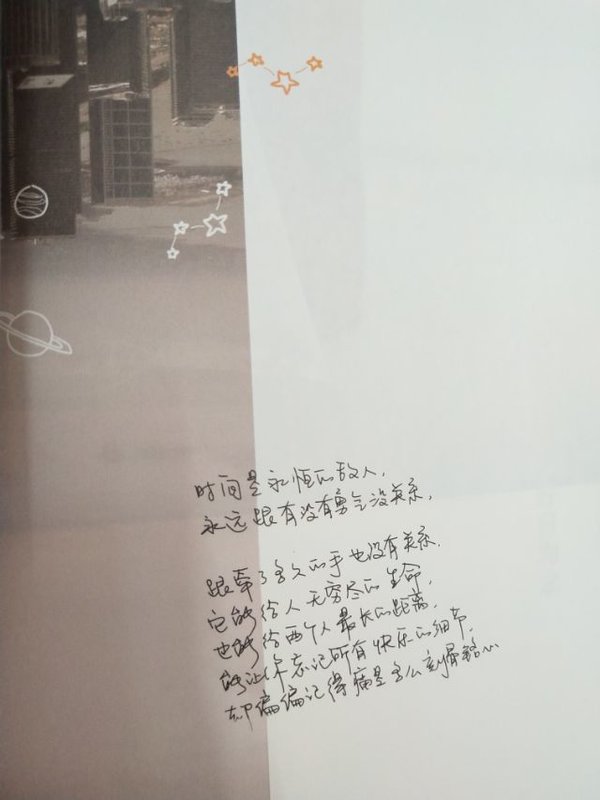 时间是永恒的敌人，
永远跟有没有勇气没关系，
跟牵了多久的手也没有关系.
它能给人无穷尽的生命，
也能给两个人最长的距离，
能让你忘记所有快乐的细节，
却偏偏记得痛是多么刻骨铭心